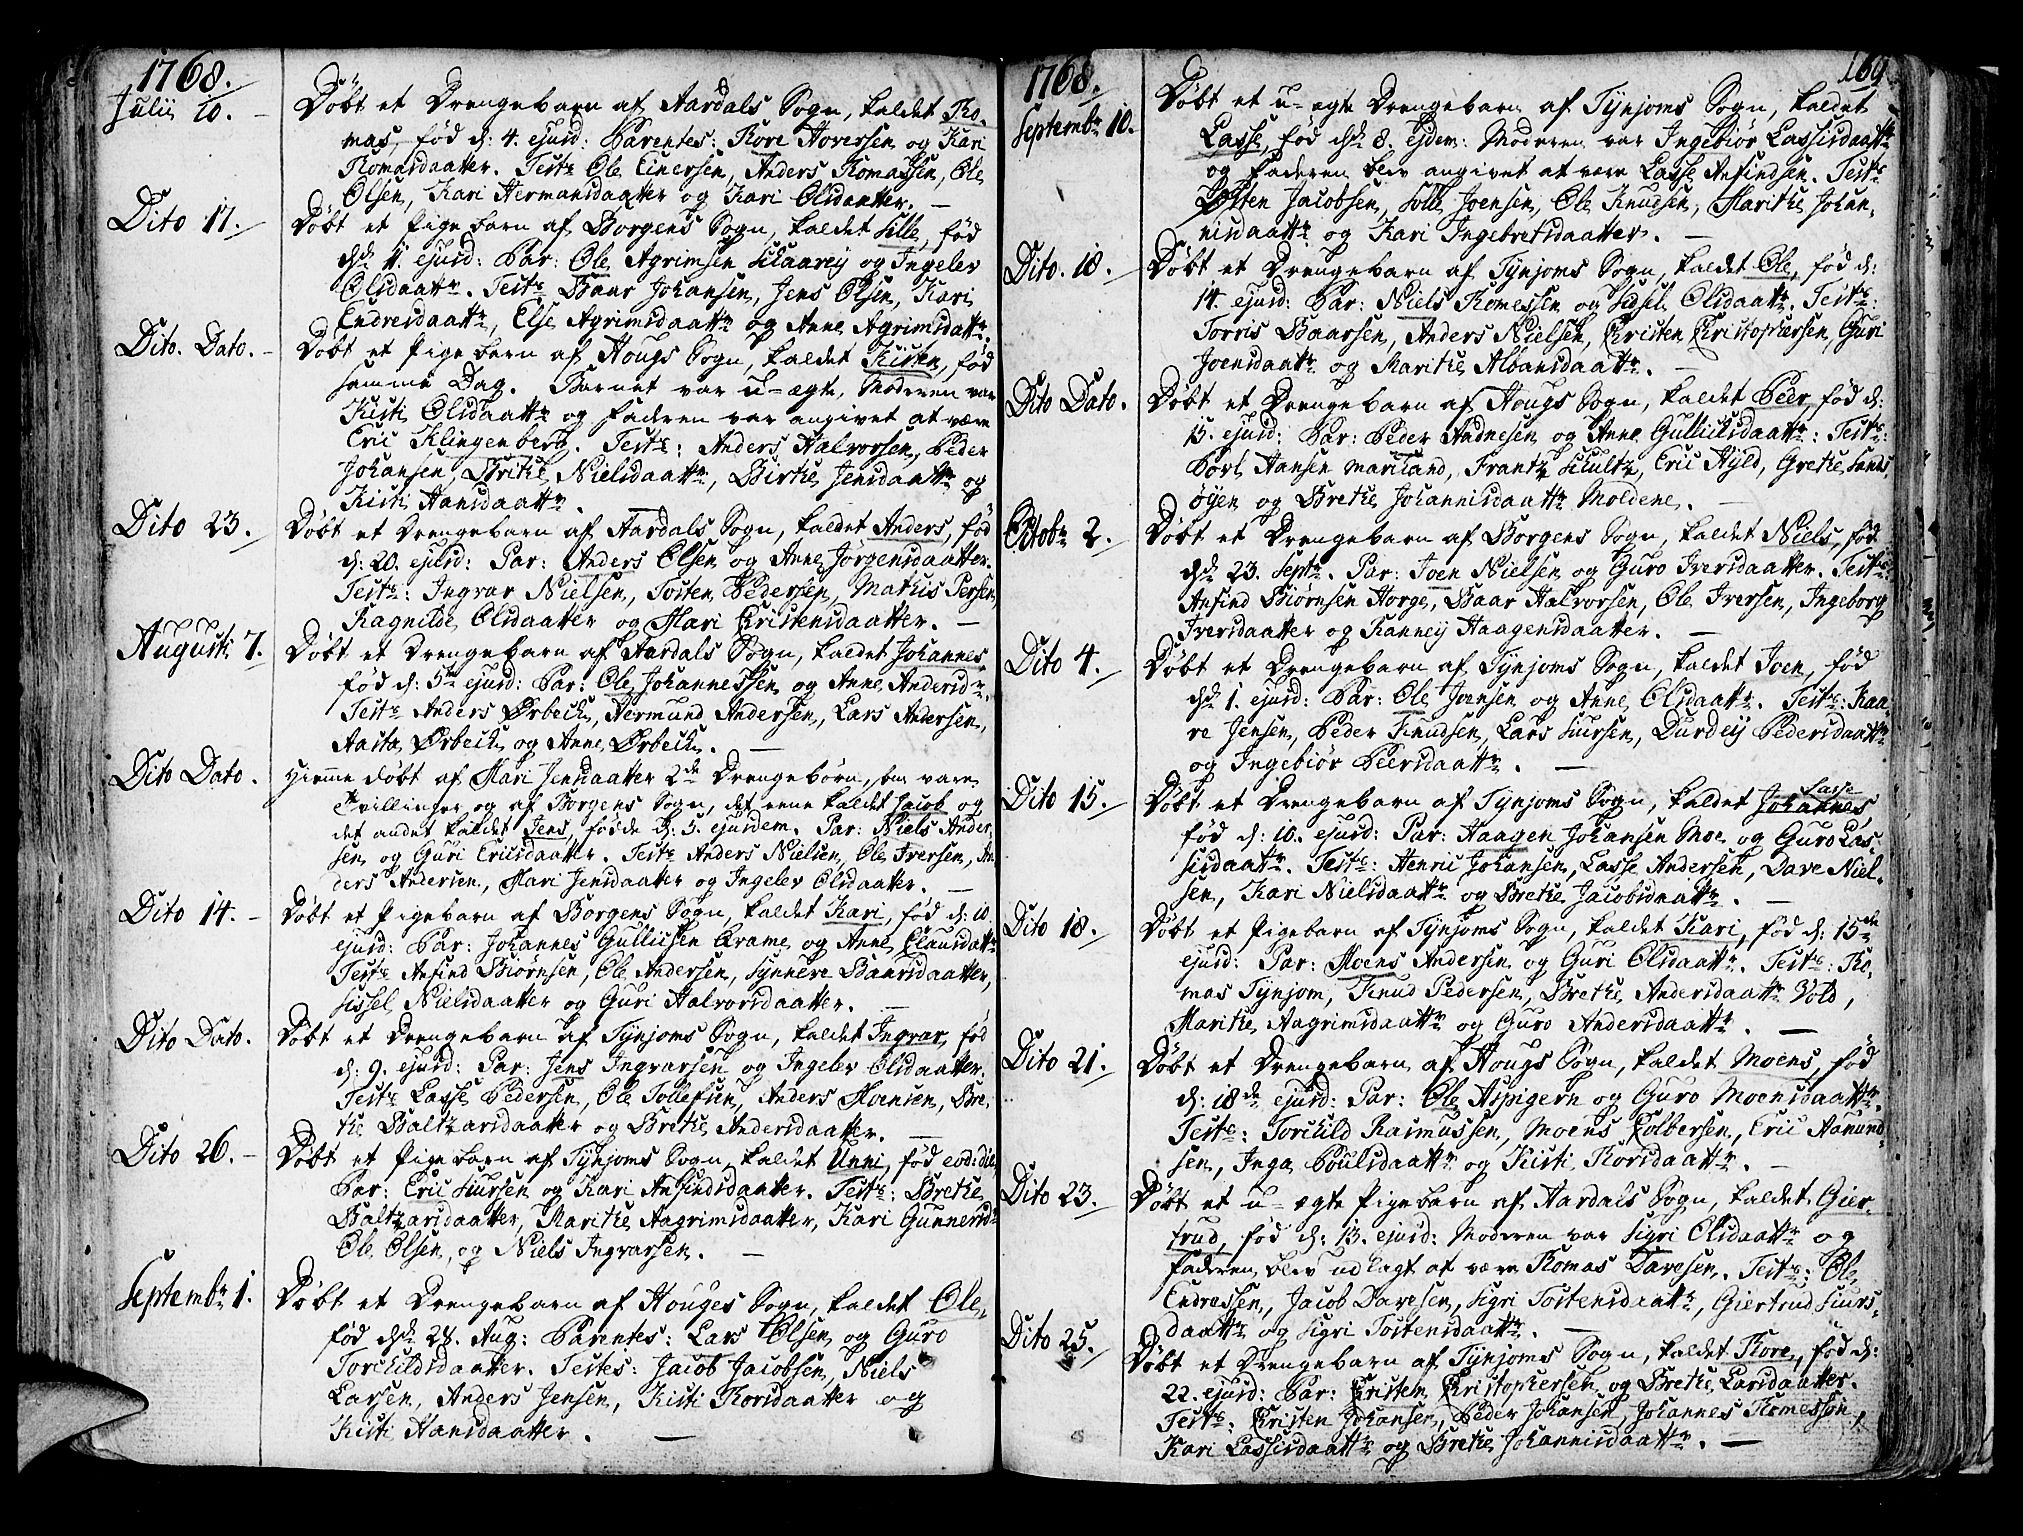 1768.
Julii 10. - Döbt et Drengebarn af Aardals Sogn, kaldet Tho-
mas, föd d: 4. ejusd: Parentes: Thore Hoversen og Kari
Thomasdaatter. Testc Ole Einersen, Anders Thomassen, Ole
Olsen, Kari Hermansdaatter og Kari Olsdaatter. -
Dito 17. Döbt et Pigebarn af Borgens Sogn, kaldet Sille, föd
dn 11. ejusd: Par: Ole Agrimsen Schaarej og Ingelev
Olsdaattr. Testc Baar Johansen, Jens Olsen, Kari
Endresdaattr, Else Agrimsdaattr og Anne Agrimsdattr.
Dito. Dato. - Döbt et Pigebarn af Hougs Sogn, kaldet Kisten, föd
samme Dag. Barnet var u-ægte, Moderen var
Kisti Olsdaattr og Faderen var angivet at være
Eric Klingenberg. Testc: Anders Halvorsen, Peder
Johansen, Brithe Nielsdaattr, Birthe Jensdaattr og
Kisti Hansdaattr.
Dito 23. Döbt et Drengebarn af Aardals Sogn, kaldet Anders, föd
d: 20. ejusd: Par: Anders Olsen og Anne Jörgensdaatter.
Testc: Ingvar Nielsen, Tosten Pedersen, Mathis Persen,
Ragnilde Olsdaatter og Mari Christensdaatter. -
Augusti 7. Döbt et Drengebarn af Aardals Sogn, kaldet Johannes
föd d: 5te ejusd: Par: Ole Johannessen og Anne Andersdr.
Testc Anders Ørbech, Hermund Andersen, Lars Andersen,
Aasta Ørbech og Anne Ørbech. -
Dito Dato. Hiemme döbt af Mari Jensdaatter 2de Drengebörn, som vare
Tvillinger og af Borgens Sogn, det eene kaldet Jacob og
det andet kaldet Jens, födde d: 5. ejusdem. Par: Niels Ander,
sen og Guri Ericsdaatter. Testc Anders Nielsen, Ole Iversen, An
ders Andersen, Mari Jensdaatter og Ingelev Olsdaatter. -
Dito 14. - Döbt et Pigebarn af Borgens Sogn, kaldet Kari, föd d: 10.
ejusd: Par: Johannes Gullicsen Krame og Anne Clausdattr
Testc Anfind Biörnsen, Ole Andersen, Synneve Baarsdaatter,
Sissel Nielsdaatter og Guri Halvorsdaatter. -
Dito Dato. Döbt et Drengebarn af Tynjoms Sogn, kaldet Ingvar, föd
d: 9. ejusd: Par: Jens Ingvarsen og Ingelev Olsdaatter.
Testc Lasse Pedersen, Ole Tollefsen, Anders Moensen, Bre-
the Baltzarsdaatter og Brethe Andersdaatter. -
Dito 26. - Döbt et Pigebarn af Tynjoms Sogn, kaldet Unni, föd eod: die
Par: Eric Siursen og Kari Anfindsdaatter. Testc: Brethe
Baltzarsdaatter, Marithe Aagrimsdaatter, Kari Gunnersdr
Ole Olsen, og Niels Ingvarsen. -
Septembr 1. Döbt et Drengebarn af Houges Sogn, kaldet Ole,
föd dn 28. Aug: Parentes: Lars Olsen og Guro
Torchildsdaatter. Testes: Jacob Jacobsen, Niels
Larsen, Anders Jensen, Kisti Thorsdaatter og
Kisti Hansdaatter. -
1768. 169.
Septembr 10. Döbt et u-ægte Drengebarn af Tynjoms Sogn, kaldet
Lasse, föd dn 8. ejdem: Moderen var Ingebiör Lassisdaattr
og Faderen blev angivet at vere Lasse Anfindsen. Testc
Tosten Jacobsen, Solle Joensen, Ole Knudsen, Marithe Johan-
nisdaattr og Kari Ingebretsdaatter. -
Dito. 18. Döbt et Drengebarn af Tynjoms Sogn, kaldet Ole, föd d:
14. ejusd: Par: Niels Thomessen og Sidsel Olsdaattr. Testc:
Torris Baarsen, Anders Nielsen, Christen Christophersen, Guri
Joensdaattr og Marithe Albansdaattr. -
Dito Dato. Döbt et Drengebarn af Hougs Sogn, kaldet Peer, föd d:
15. ejusd: Par: Peder Aadnesen og Anne Gullichsdaattr: Testc:
Povl Hansen Maritand, Frantz Schultz, Eric Hyld, Grethe Sands
öyen og Brethe Johannisdaattr Moldene. -
Octobr 2. Döbt et Drengebarn af Borgens Sogn, kaldet Niels, föd
dn 23. Septr. Par: Joen Nielsen og Guro Iversdaatter. Testc:
Anfind Biörnsen Horge, Baar Halvorsen, Ole Iversen, Ingeborg
Iversdaatter og Rannej Haagensdaatter. -
Dito 4. Döbt et Drengebarn af Tynjoms Sogn, kaldet Joen, föd
dn 1. ejusd: Par: Ole Joensen og Anne Olsdaattr. Testc: Kaa
re Jensen, Peder Knudsen, Lars Siursen, Durdej Pedersdaattr
og Ingebiör Peersdaattr. -
Dito 15. Döbt et Drengebarn af Tynjoms Sogn, kaldet Johannes Lasse
föd d: 10. ejusd: Par: Haagen Johansen Moe og Guro Las-
sisdaattr. Testc: Henric Johansen, Lasse Andersen, Dave Niel-
sen, Kari Nielsdaattr og Brethe Jacobsdaattr. -
Dito 18. Döbt et Pigebarn af Tynjoms Sogn, kaldet Kari, föd d: 15de
ejusd: Par: Moens Andersen og Guri Olsdaattr. Testc: Tho,
mas Tynjom, Knud Pedersen, Brethe Andersdaattr Vold,
Marithe Aagrimsdaattr og Guro Andersdaattr. -
Dito 21. Döbt et Drengebarn af Hougs Sogn, kaldet Moens, föd
d: 18de ejusd: Par: Ole Hspigern og Guro Moensdaattr.
Testc: Torchild Rasmussen, Moens Colbersen, Eric Aamund-
sen, Inga Poulsdaattr og Kisti Thorsdaattr. -
Dito 23. Döbt et u-ægte Pigebarn af Aardals Sogn, kaldet Gier-
trud, föd d: 13. ejusd: Moderen var Sigri Olsdaattr og
Faderen blev udlagt at være Thomas Davesen. Testc: Ole
Endressen, Jacob Davesen, Sigri Tostensdaattr, Giertrud Siurs-
daattr og Sigri Tostensdaattr. -
Dito 25. Döbt et Drengebarn af Tynjoms Sogn, kaldet Thore, föd d:
22. ejusd: Par: Christen Christophersen og Brethe Larsdaatter.
Testc: Christen Johansen, Peder Johansen, Johannes Thomesson,
Kari Lassisdaattr og Brethe Johannisdaattr. -